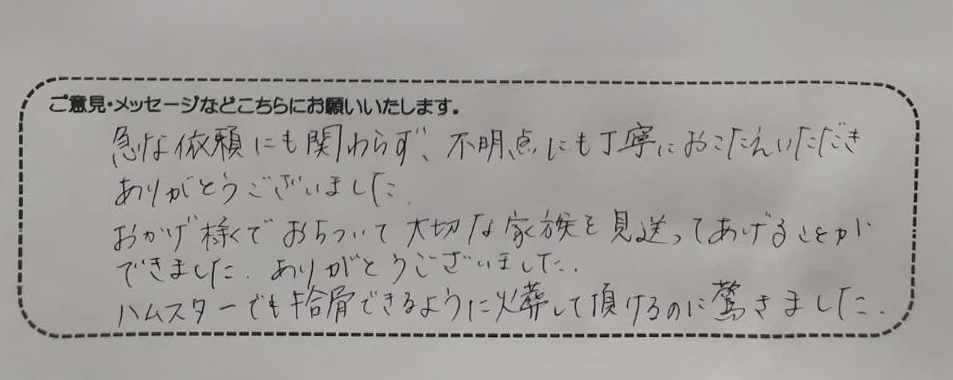 ご意見・メッセージなどこちらにお願いいたします。
急な依頼にも関わらず、不明点にも丁寧におこたえいただき
ありがとうございました.
おかげ様でおちついて大切な家族を見送ってあげることが
できました. ありがとうございました.
ハムスターでも拾骨できるように火葬して頂けるのに驚きました.